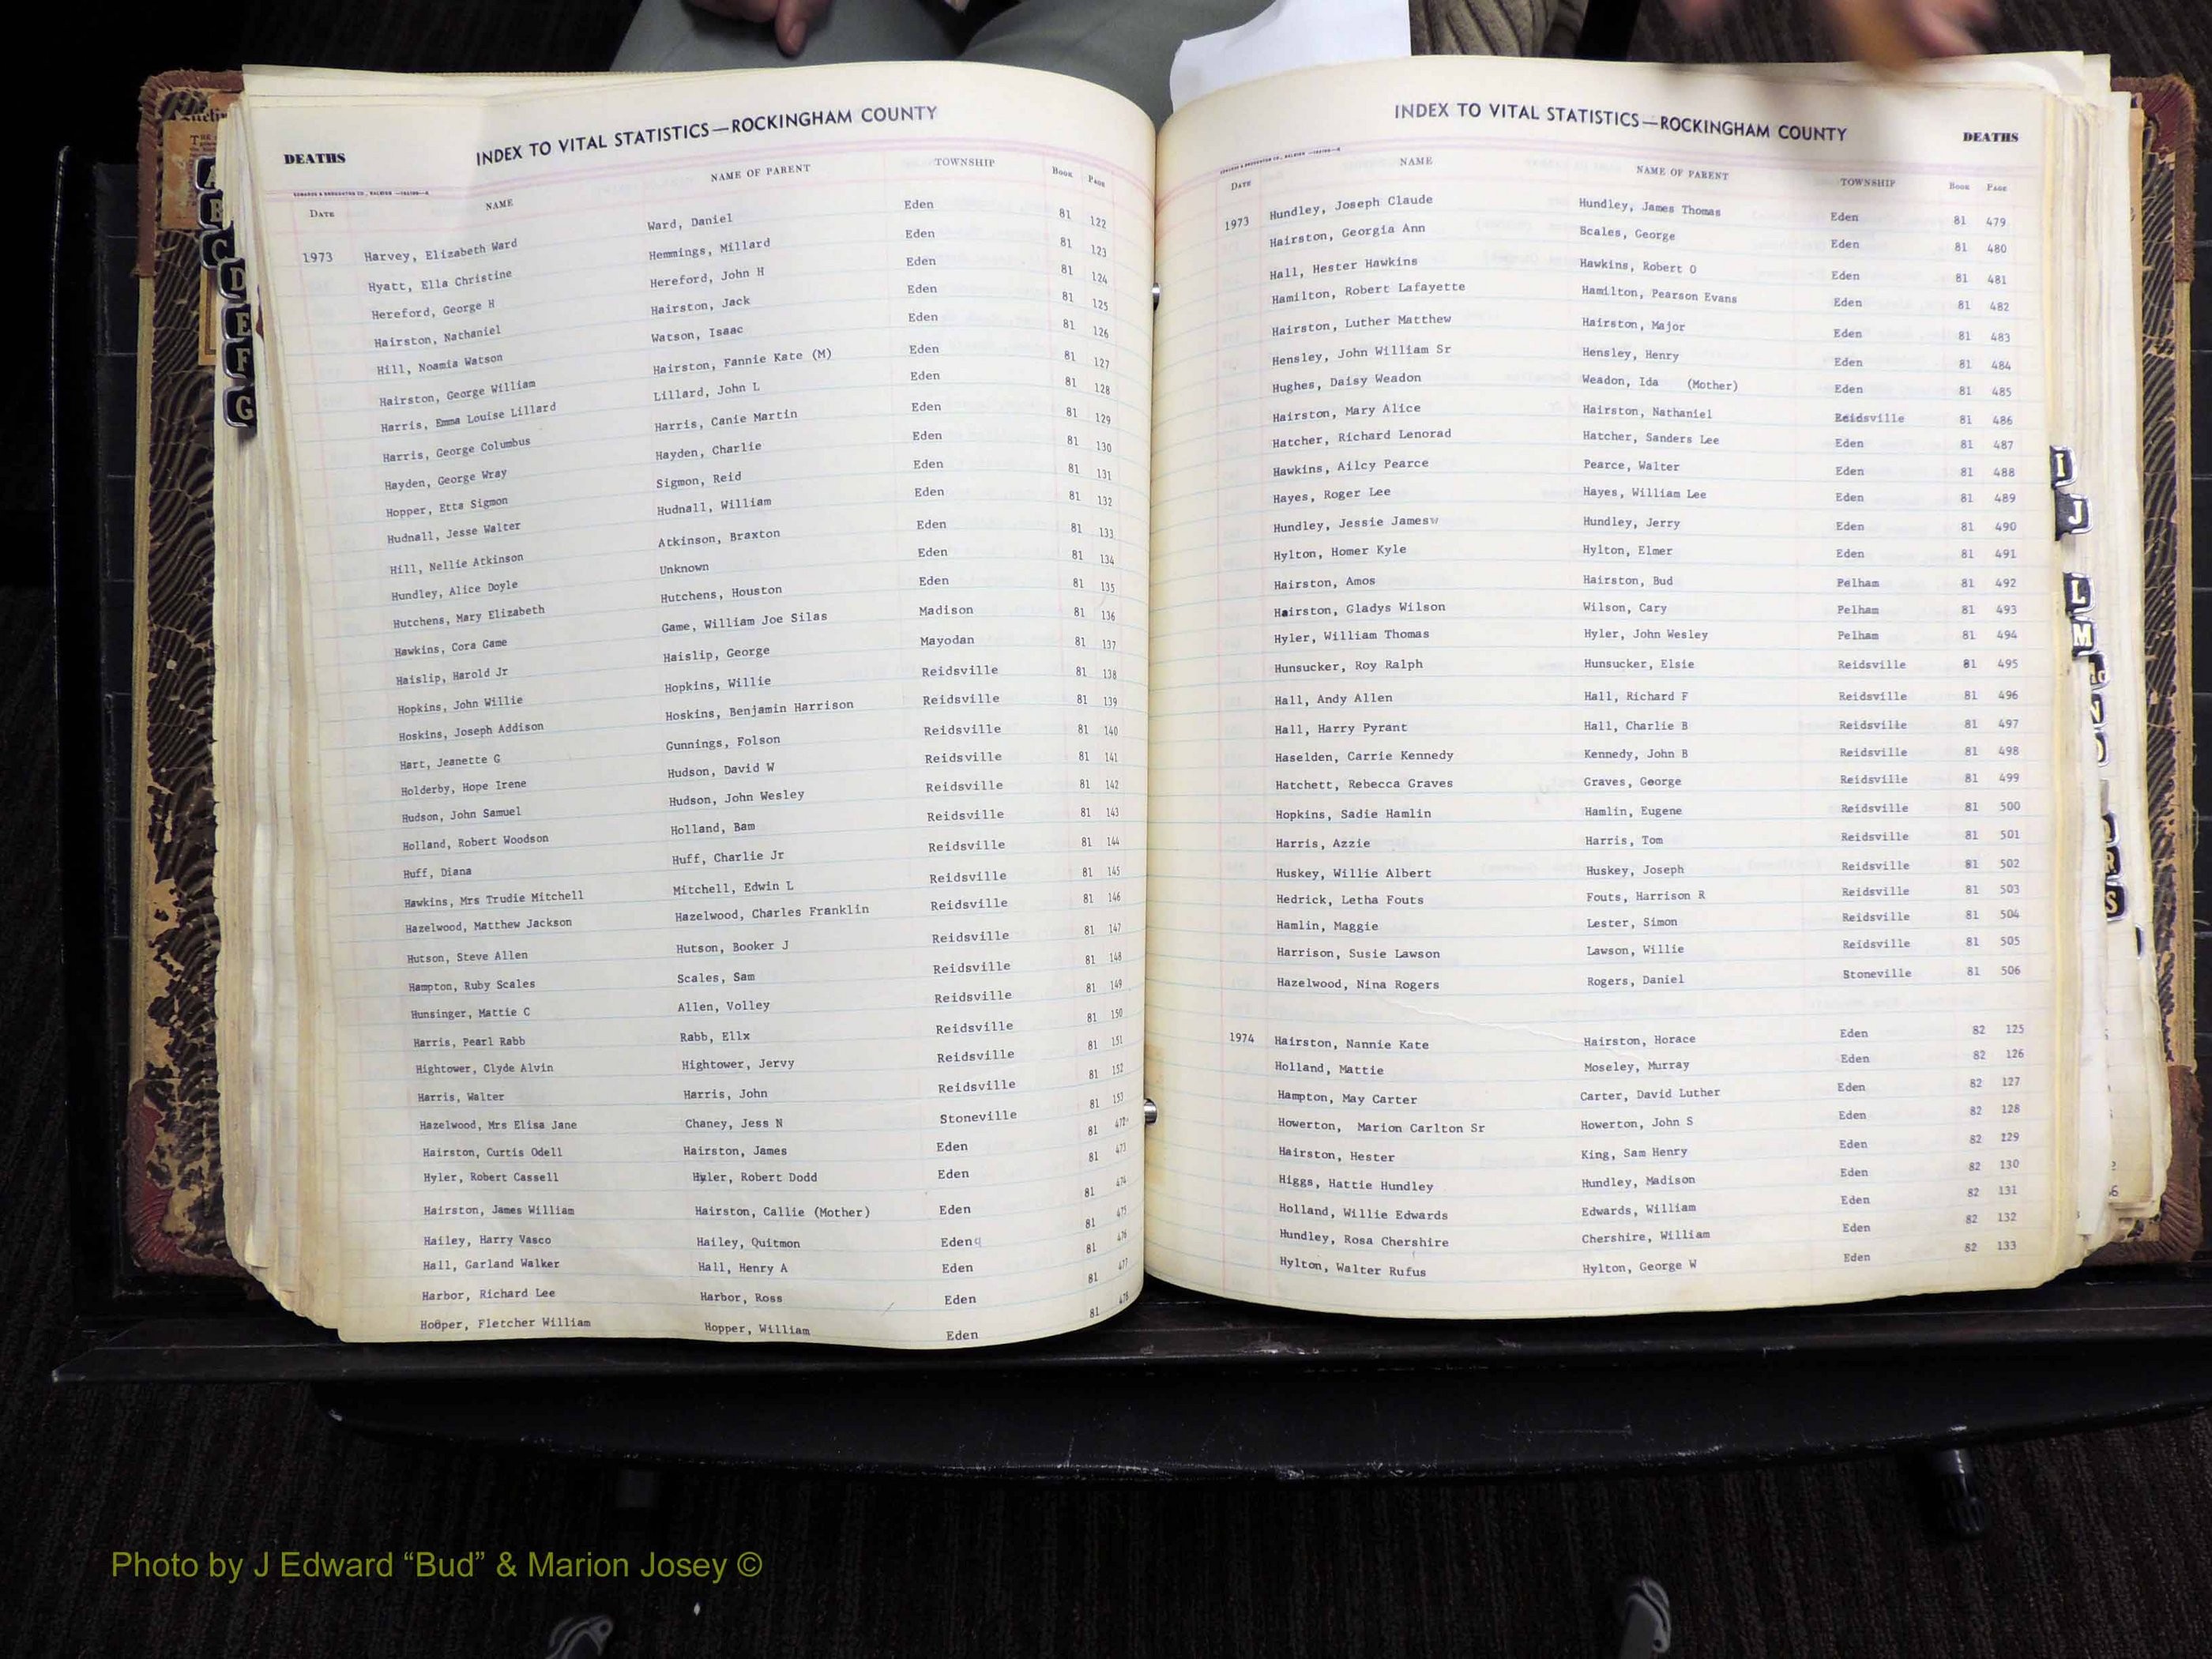 DEATHS
INDEX TO VITAL STATISTICS—ROCKINGHAM COUNTY
DATE NAME NAME OF PARENT TOWNSHIP Book Page
1973 Harvey, Elizabeth Ward Ward, Daniel Eden 81 122
Hyatt, Ella Christine Hemmings, Millard Eden 81 123
Hereford, George H Hereford, John H Eden 81 124
Hairston, Nathaniel Hairston, Jack Eden 81 125
Hill, Noamia Watson Watson, Isaac Eden 81 126
Hairston, George William Hairston, Fannie Kate (M) Eden 81 127
Harris, Emma Louise Lillard Lillard, John L Eden 81 128
Harris, George Columbus Harris, Canie Martin Eden 81 129
Hayden, George Wray Hayden, Charlie Eden 81 130
Hopper, Etta Sigmon Sigmon, Reid Eden 81 131
Hudnall, Jesse Walter Hudnall, William Eden 81 132
Hill, Nellie Atkinson Atkinson, Braxton Eden 81 133
Hundley, Alice Doyle Unknown Eden 81 134
Hutchens, Mary Elizabeth Hutchens, Houston Eden 81 135
Hawkins, Cora Game Game, William Joe Silas Madison 81 136
Haislip, Harold Jr Haislip, George Mayodan 81 137
Hopkins, John Willie Hopkins, Willie Reidsville 81 138
Hoskins, Joseph Addison Hoskins, Benjamin Harrison Reidsville 81 139
Hart, Jeanette G Gunnings, Folson Reidsville 81 140
Holderby, Hope Irene Hudson, David W Reidsville 81 141
Hudson, John Samuel Hudson, John Wesley Reidsville 81 142
Holland, Robert Woodson Holland, Bam Reidsville 81 143
Huff, Diana Huff, Charlie Jr Reidsville 81 144
Hawkins, Mrs Trudie Mitchell Mitchell, Edwin L Reidsville 81 145
Hazelwood, Matthew Jackson Hazelwood, Charles Franklin Reidsville 81 146
Hutson, Steve Allen Hutson, Booker J Reidsville 81 147
Hampton, Ruby Scales Scales, Sam Reidsville 81 148
Hunsinger, Mattie C Allen, Volley Reidsville 81 149
Harris, Pearl Rabb Rabb, Ellx Reidsville 81 150
Hightower, Clyde Alvin Hightower, Jervy Reidsville 81 151
Harris, Walter Harris, John Reidsville 81 152
Hazelwood, Mrs Elisa Jane Chaney, Jess N Stoneville 81 153
Hairston, Curtis Odell Hairston, James Eden 81 472
Hyler, Robert Cassell Hyler, Robert Dodd Eden 81 473
Hairston, James William Hairston, Callie (Mother) Eden 81 474
Hailey, Harry Vasco Hailey, Quitmon Edenq 81 475
Hall, Garland Walker Hall, Henry A Eden 81 476
Harbor, Richard Lee Harbor, Ross Eden 81 477
Hopper, Fletcher William Hopper, William Eden 81 478
INDEX TO VITAL STATISTICS—ROCKINGHAM COUNTY
DEATHS
DATE NAME NAME OF PARENT TOWNSHIP Book Page
1973 Hundley, Joseph Claude Hundley, James Thomas Eden 81 479
Hairston, Georgia Ann Scales, George Eden 81 480
Hall, Hester Hawkins Hawkins, Robert O Eden 81 481
Hamilton, Robert Lafayette Hamilton, Pearson Evans Eden 81 482
Hairston, Luther Matthew Hairston, Major Eden 81 483
Hensley, John William Sr Hensley, Henry Eden 81 484
Hughes, Daisy Weadon Weadon, Ida (Mother) Eden 81 485
Hairston, Mary Alice Hairston, Nathaniel Reidsville 81 486
Hatcher, Richard Lenorad Hatcher, Sanders Lee Eden 81 487
Hawkins, Ailcy Pearce Pearce, Walter Eden 81 488
Hayes, Roger Lee Hayes, William Lee Eden 81 489
Hundley, Jessie Jamesw Hundley, Jerry Eden 81 490
Hylton, Homer Kyle Hylton, Elmer Eden 81 491
Hairston, Amos Hairston, Bud Pelham 81 492
Hairston, Gladys Wilson Wilson, Cary Pelham 81 493
Hyler, William Thomas Hyler, John Wesley Pelham 81 494
Hunsucker, Roy Ralph Hunsucker, Elsie Reidsville 81 495
Hall, Andy Allen Hall, Richard F Reidsville 81 496
Hall, Harry Pyrant Hall, Charlie B Reidsville 81 497
Haselden, Carrie Kennedy Kennedy, John B Reidsville 81 498
Hatchett, Rebecca Graves Graves, George Reidsville 81 499
Hopkins, Sadie Hamlin Hamlin, Eugene Reidsville 81 500
Harris, Azzie Harris, Tom Reidsville 81 501
Huskey, Willie Albert Huskey, Joseph Reidsville 81 502
Hedrick, Letha Fouts Fouts, Harrison R Reidsville 81 503
Hamlin, Maggie Lester, Simon Reidsville 81 504
Harrison, Susie Lawson Lawson, Willie Reidsville 81 505
Hazelwood, Nina Rogers Rogers, Daniel Stoneville 81 506
1974 Hairston, Nannie Kate Hairston, Horace Eden 82 125
Holland, Mattie Moseley, Murray Eden 82 126
Hampton, May Carter Carter, David Luther Eden 82 127
Howerton, Marion Carlton Sr Howerton, John S Eden 82 128
Hairston, Hester King, Sam Henry Eden 82 129
Higgs, Hattie Hundley Hundley, Madison Eden 82 130
Holland, Willie Edwards Edwards, William Eden 82 131
Hundley, Rosa Chershire Chershire, William Eden 82 132
Hylton, Walter Rufus Hylton, George W Eden 82 133
A
B
C
D
E
F
G
I
J
L
M
N
R
S
Photo by J Edward “Bud” & Marion Josey ©